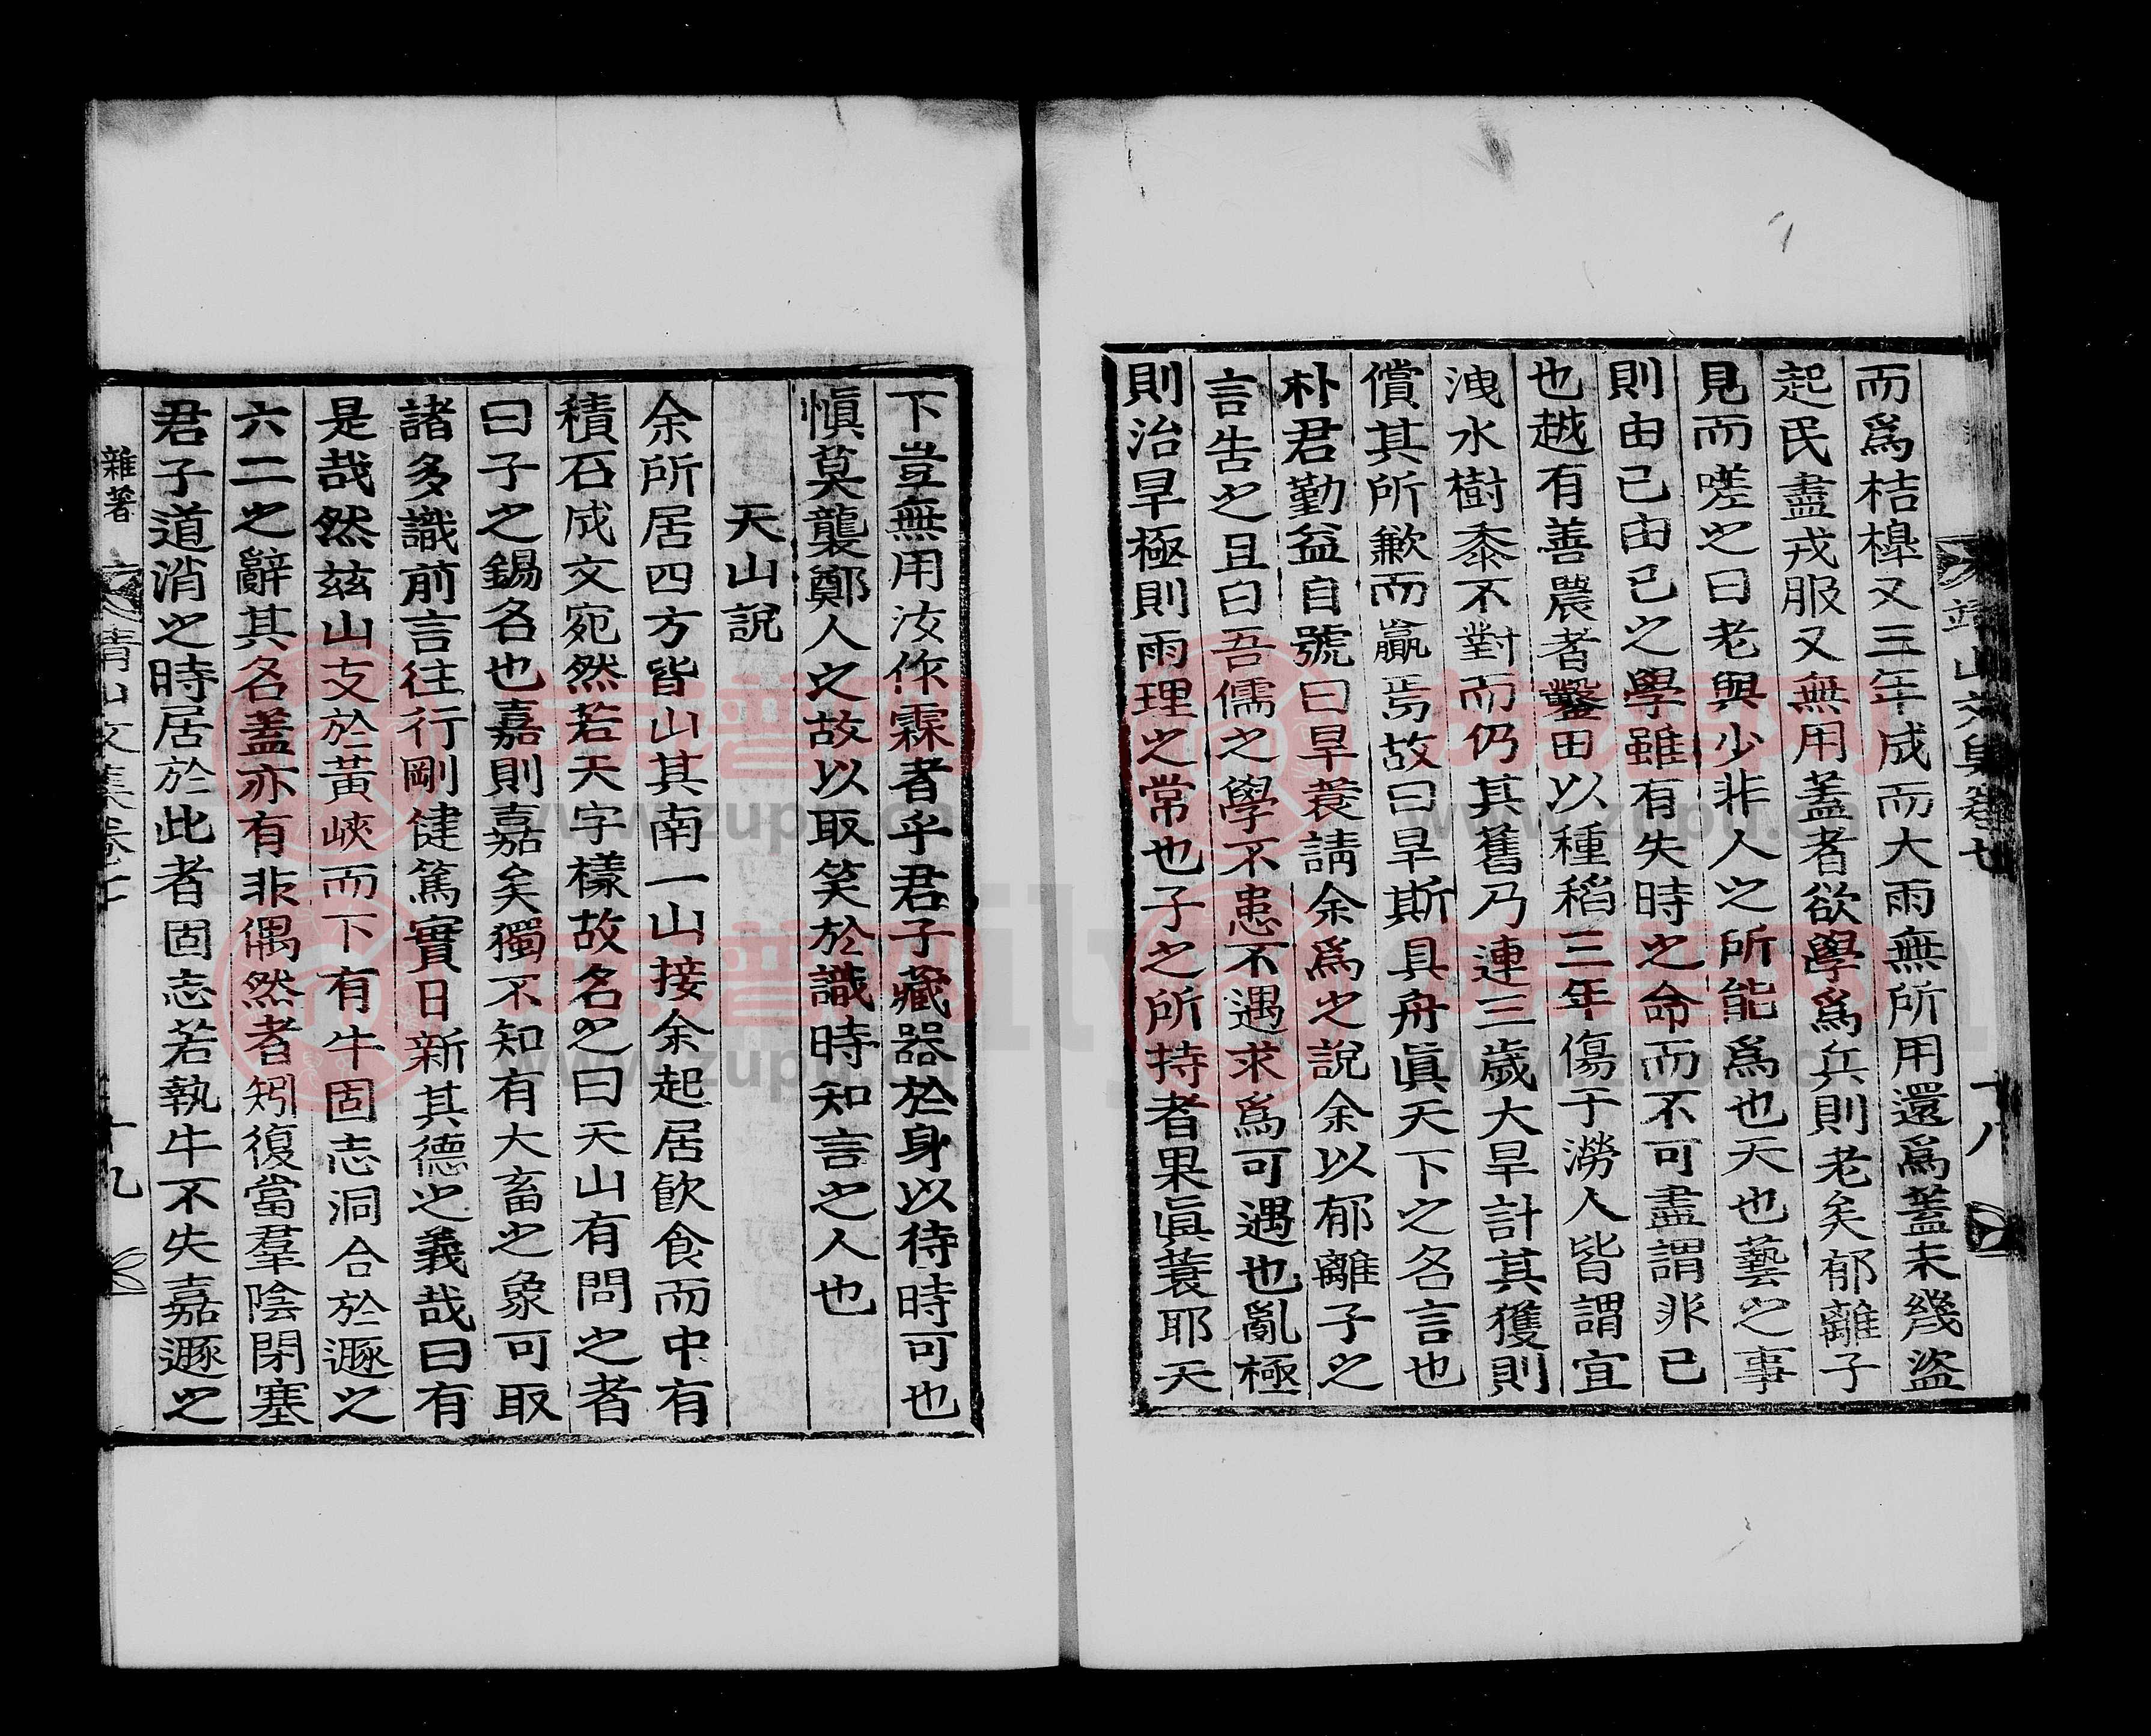 而爲桔槹又三年成而大雨無所用還爲蓋未幾盜
起民盡戎服又無用蓋者欲學爲兵則老矣郁離子
見而嗟之曰老與少非人之所能爲也天也藝之事
則由己由己之學雖有失時之命而不可盡謂非己
也越有善農者鑿田以種稻三年傷于澇人皆謂宜
洩水樹黍不對而仍其舊乃連三歲大旱計其獲則
償其所歉而贏焉故曰旱斯具舟眞天下之名言也
朴君勤益自號曰旱蓑請余爲之說余以郁離子之
言告之且曰吾儒之學不患不遇求爲可遇也亂極
則治旱極則雨理之常也子之所持者果眞蓑耶天
山文集卷七
十八
下豈無用汝作霖者乎君子藏器於身以待時可也
愼莫襲鄭人之故以取笑於識時知言之人也
天山說
余所居四方皆山其南一山接余起居飮食而中有
積石成文宛然若天字樣故名之曰天山有問之者
曰子之錫名也嘉則嘉矣獨不知有大畜之象可取
諸多識前言往行剛健篤實日新其德之義哉曰有
是哉然玆山支於黃峽而下有牛固志洞合於遯之
六二之辭其名蓋亦有非偶然者矧復當羣陰閉塞
君子道消之時居於此者固志若執牛不失嘉遯之
雜著
山文集卷七
十九
宗普网
www.zupu.cn
宗普网
www.zupu.cn
宗普网
www.zupu.cn
宗普网
www.zupu.cn